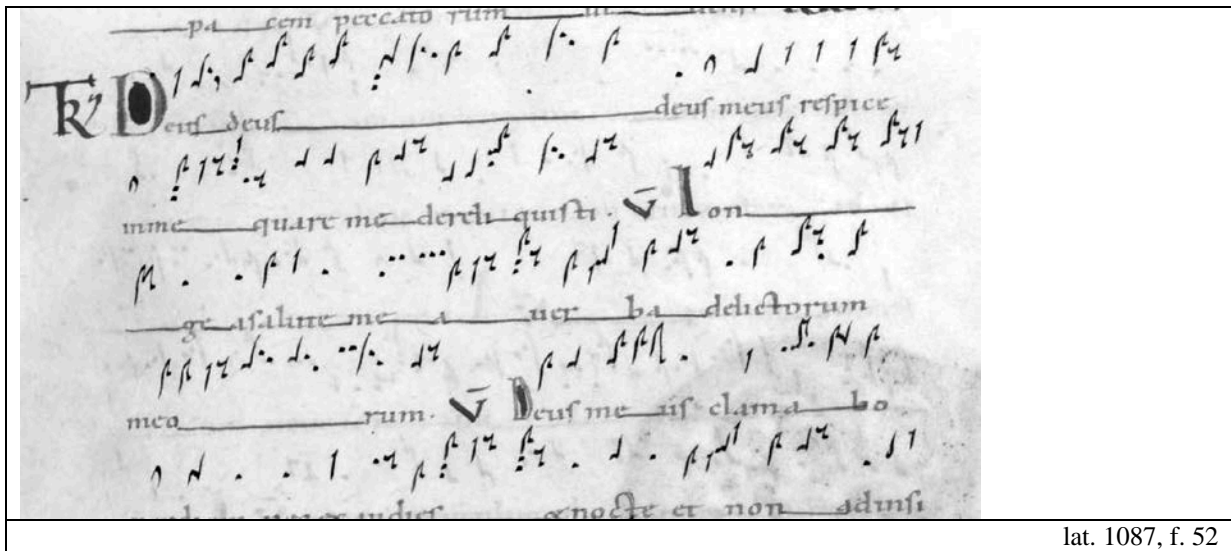 pa cem peccato rum
TR Deuſ deuſ deuſ meuſ reſpice
inme quare me dereli quiſti. V Lon
ge aſalute me a uer ba delictorum
meo rum. V Deuſ me uſ clama bo
nocte et non adinſi
lat. 1087, f. 52